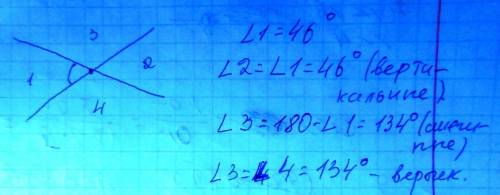 3
1
2
4
∠1=46°
∠2=∠1=46° (верти-
кальные)
∠3=180-∠1=134° (смеж-
ные)
∠3=∠4=134° - вертик.